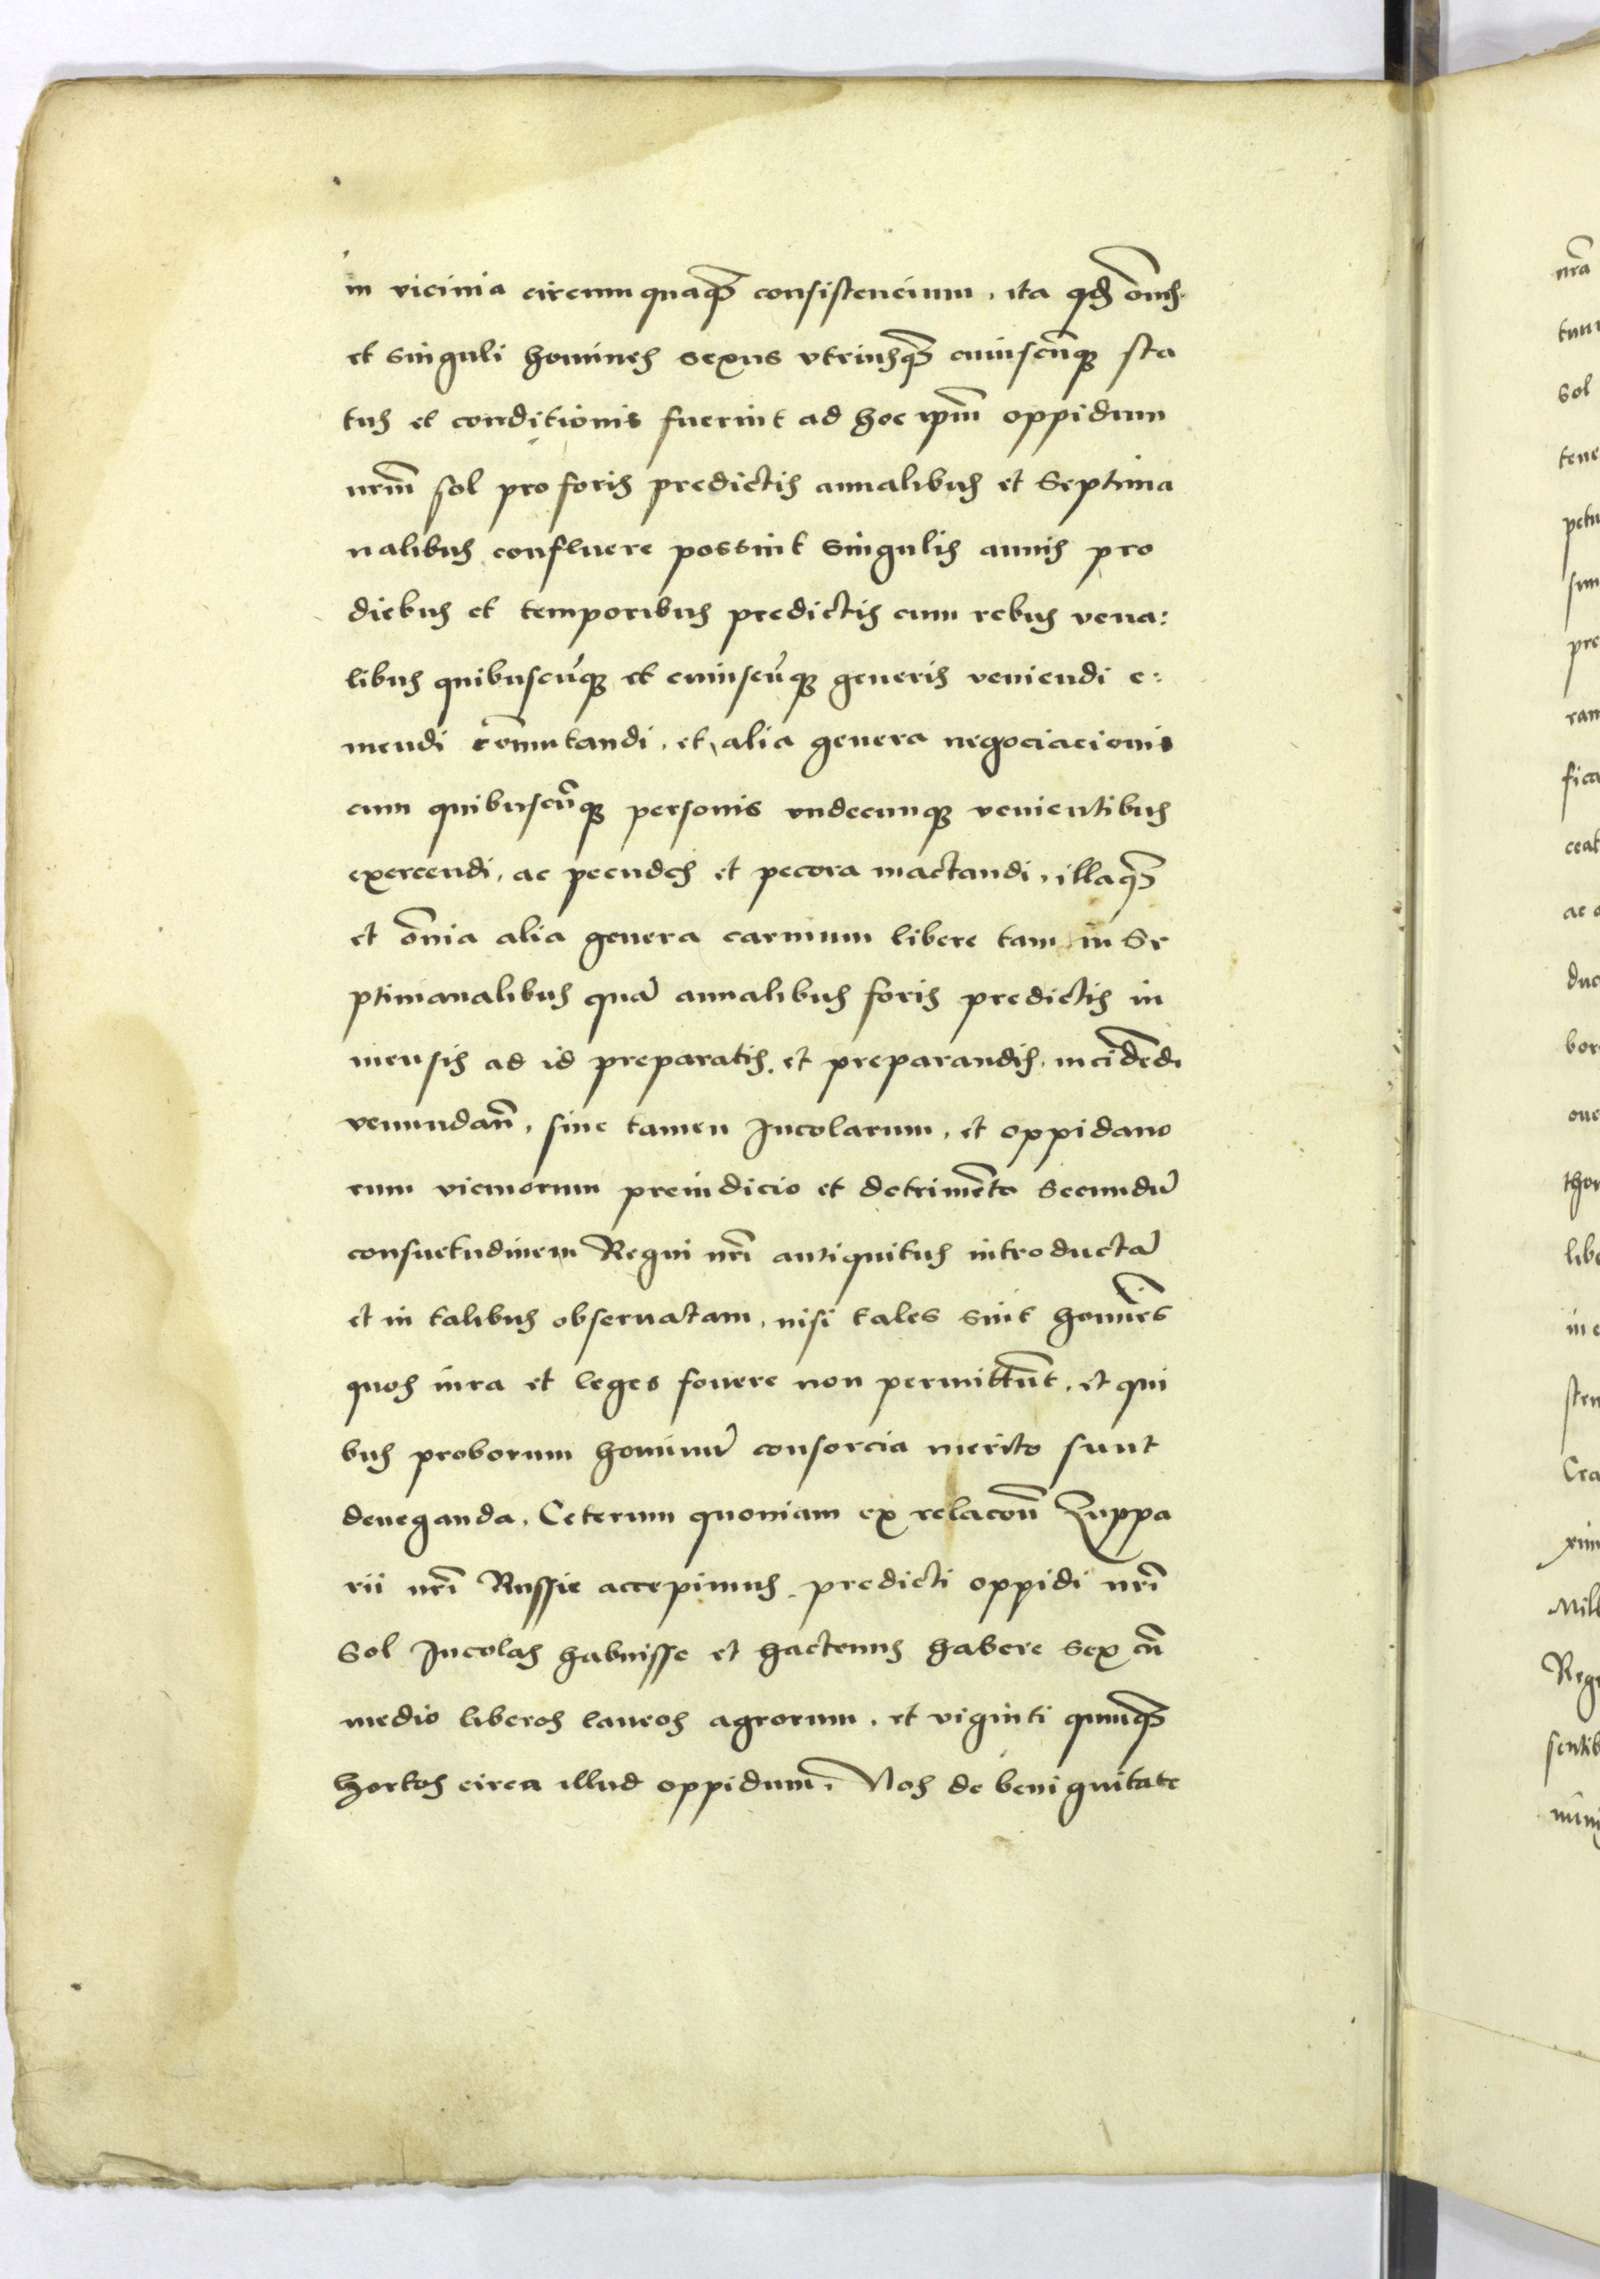 in vicinia circumquaqꝫ consistencium, ita qđ om̄es
et singuli homines sexus vtriusqꝫ cuiuscūqꝫ sta
tus et conditionis fuerint ad hoc ip̄m oppidum
nrm̄ sol pro foris predictis annalibus et Septima
nalibus confluere possint singulis annis pro
diebus et temporibus predictis cum rebus vena:
libus quibuscūqꝫ et cuiuscūqꝫ generis veniendi e:
mendi com̄utandi, et alia genera negociacionis
cum quibuscūqꝫ personis vndecunqꝫ venientibus
exercendi, ac pecudes et pecora mactandi, illaqꝫ
et om̄ia alia genera carnium libere tam in Se
ptimanalibus quā annalibus foris predictis in
mensis ad id preparatis et preparandis, incidēdi
venundan̄, sine tamen Incolarum, et oppidano
rum vicinorum preiudicio et detrimēto secundū
consuetudinem Regni nr̄i antiquitus introductā
et in talibus obseruatam, nisi tales sint homīes
quos iura et leges fouere non permittūt, et qui
bus proborum hominū consorcia merito sunt
deneganda, Ceterum quoniam ex relacōn̄ Zuppa
rii nr̄i Russie accepimus, predicti oppidi nr̄i
Sol Incolas habuisse et hactenus habere sex cū
medio liberos laneos agrorum, et viginti quinqꝫ
hortos circa illud oppidum, Nos de benignitate
nr̄a
sol